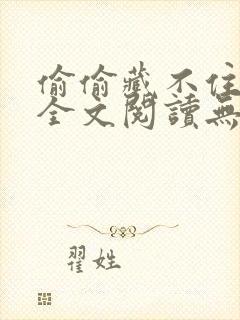 偷偷藏不住
全文閱讀無
翟姓